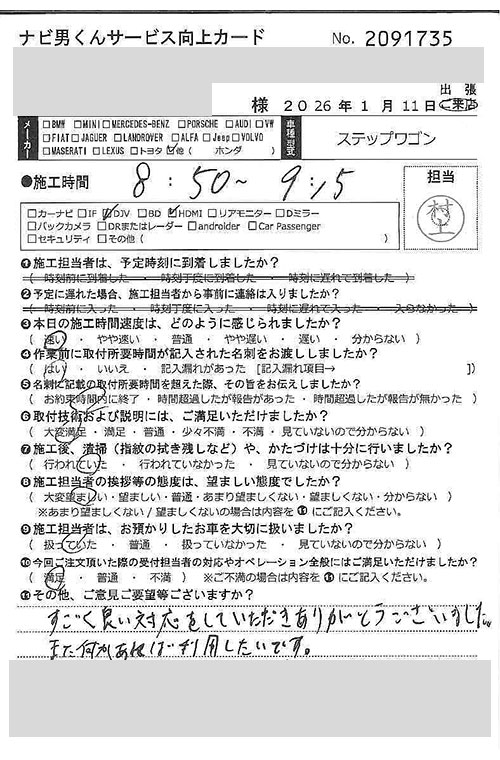 ナビ男くんサービス向上カード No. 2091735
出 張
様 2026年 1月 11日 ご来店
メーカー □BMW □MINI □MERCEDES-BENZ □PORSCHE □AUDI □VW
□FIAT □JAGUER □LANDROVER □ALFA □Jeep □VOLVO
□MASERATI □LEXUS □トヨタ ☑他 ( ホンダ )
車種型式 ステップワゴン
●施工時間 8:50~ 9:15
担当
村上
□カーナビ □IF ☑DJV □BD ☑HDMI □リアモニター □Dミラー
□バックカメラ □DRまたはレーダー □androider □Car Passenger
□セキュリティ □その他 ( )
❶施工担当者は、予定時刻に到着しましたか?
( 時刻前に到着した ・ 時刻丁度に到着した ・ 時刻に遅れて到着した )
❷予定に遅れた場合、施工担当者から事前に連絡は入りましたか?
( 時刻前に入った ・ 時刻丁度に入った ・ 時刻に遅れて入った ・ 入らなかった )
❸本日の施工時間速度は、どのように感じられましたか?
( 速い ・ やや速い ・ 普通 ・ やや遅い ・ 遅い ・ 分からない )
❹作業前に取付所要時間が記入された名刺をお渡ししましたか?
( はい ・ いいえ ・ 記入漏れがあった [記入漏れ項目→ ])
❺名刺に記載の取付所要時間を超えた際、その旨をお伝えしましたか?
( お約束時間内に終了 ・ 時間超過したが報告があった ・ 時間超過したが報告が無かった )
❻取付技術および説明には、ご満足いただけましたか?
( 大変満足 ・ 満足 ・ 普通 ・ 少々不満 ・ 不満 ・ 見ていないので分からない )
❼施工後、清掃(指紋の拭き残しなど)や、かたづけは十分に行いましたか?
( 行われていた ・ 行われていなかった ・ 見ていないので分からない )
❽施工担当者の挨拶等の態度は、望ましい態度でしたか?
( 大変望ましい・望ましい・普通・あまり望ましくない・望ましくない・分からない )
※あまり望ましくない / 望ましくないの場合は内容を⓫にご記入ください。
❾施工担当者は、お預かりしたお車を大切に扱いましたか?
( 扱っていた ・ 普通 ・ 扱っていなかった ・ 見ていないので分からない )
❿今回ご注文頂いた際の受付担当者の対応やオペレーション全般にはご満足いただけましたか?
( 満足 ・ 普通 ・ 不満 ) ※ご不満の場合は内容を⓫にご記入ください。
⓫その他、ご意見ご要望等ございますか?
すごく良い対応をしていただきありがとうございました。
また何かあれば利用したいです。